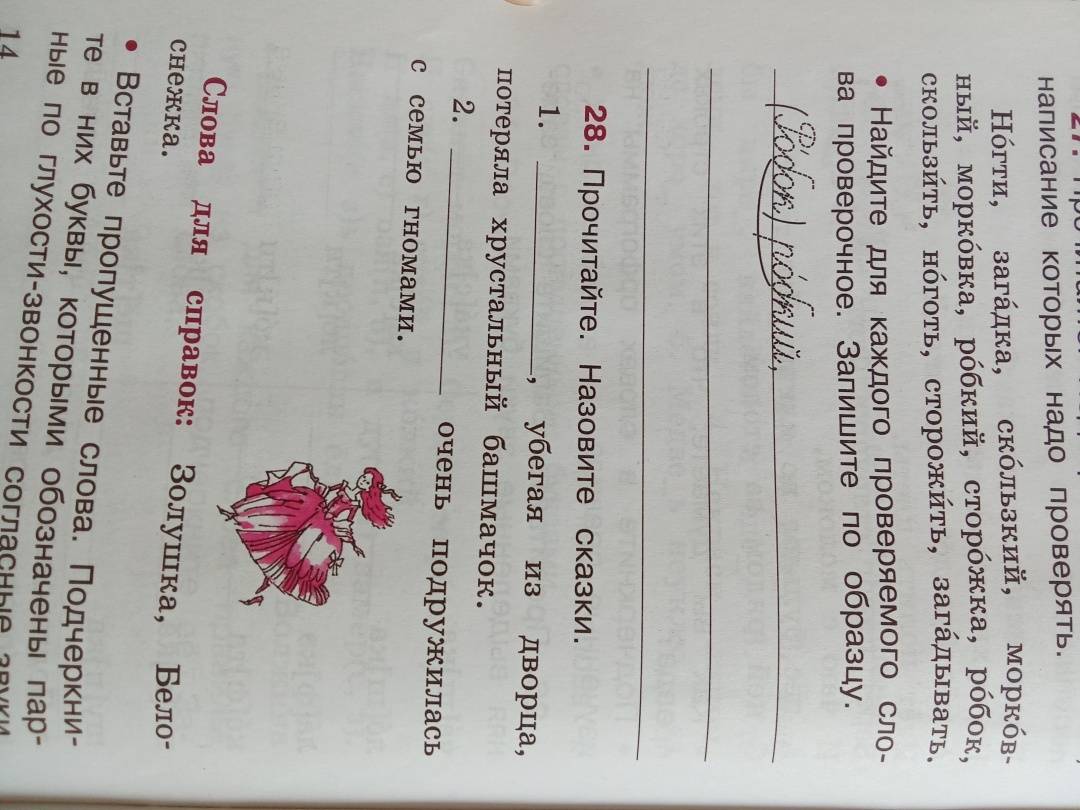 написание которых надо проверять.
Но́гти, зага́дка, ско́льзкий, морко́в-
ный, морко́вка, ро́бкий, сторо́жка, ро́бок,
скользи́ть, но́готь, сторожи́ть, зага́дывать.
• Найдите для каждого проверяемого сло-
ва проверочное. Запишите по образцу.
(Ро́бок) ро́бкий,
28. Прочитайте. Назовите сказки.
1. ____________, убегая из дворца,
потеряла хрустальный башмачок.
2. ____________ очень подружилась
с семью гномами.
Слова для справок: Золушка, Бело-
снежка.
• Вставьте пропущенные слова. Подчеркни-
те в них буквы, которыми обозначены пар-
ные по глухости-звонкости согласные звуки
14